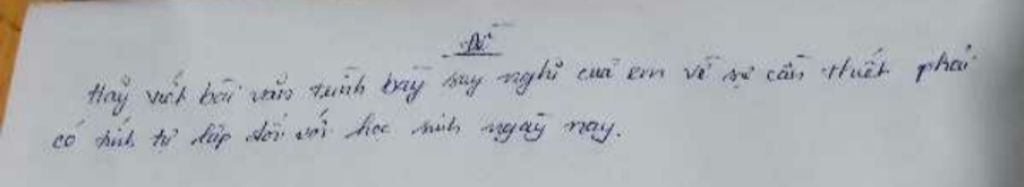 Đề
Hãy viết bài văn trình bày suy nghĩ của em về sự cần thiết phải
có tính tự lập đối với học sinh ngày nay.